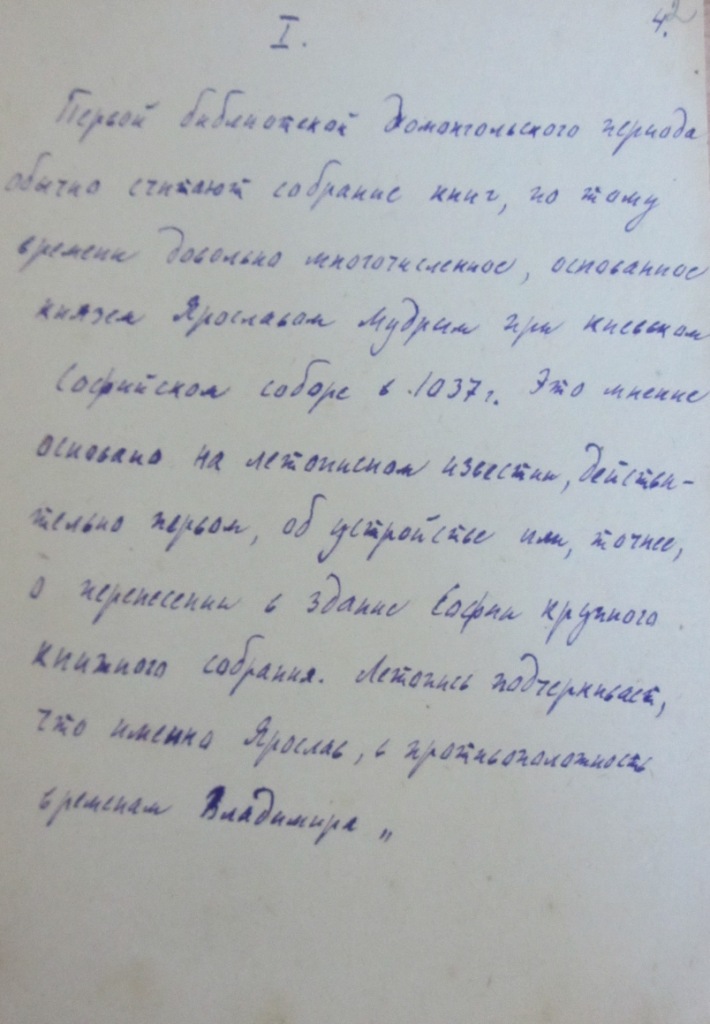 I.
4.2
Первой библиотекой домонгольского периода
обычно считают собрание книг, по тому
времени довольно многочисленное, основанное
князем Ярославом Мудрым при киевском
Софийском соборе в 1037 г. Это мнение
основано на летописном известии, действи-
тельно первом, об устройстве или, точнее,
о перенесении в здание Софии крупного
книжного собрания. Летопись подчеркивает,
что именно Ярослав, в противоположность
временам Владимира „